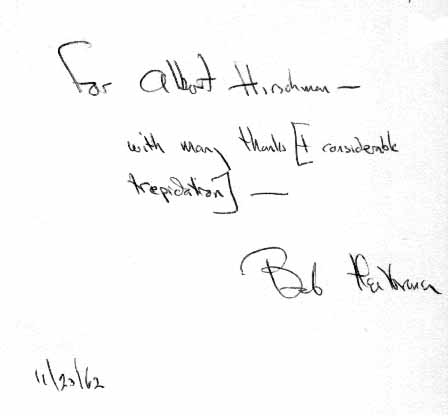 For Albert Hirschman —
with many thanks [+ considerable
trepidation] —
Bob Heilbroner
11/20/62